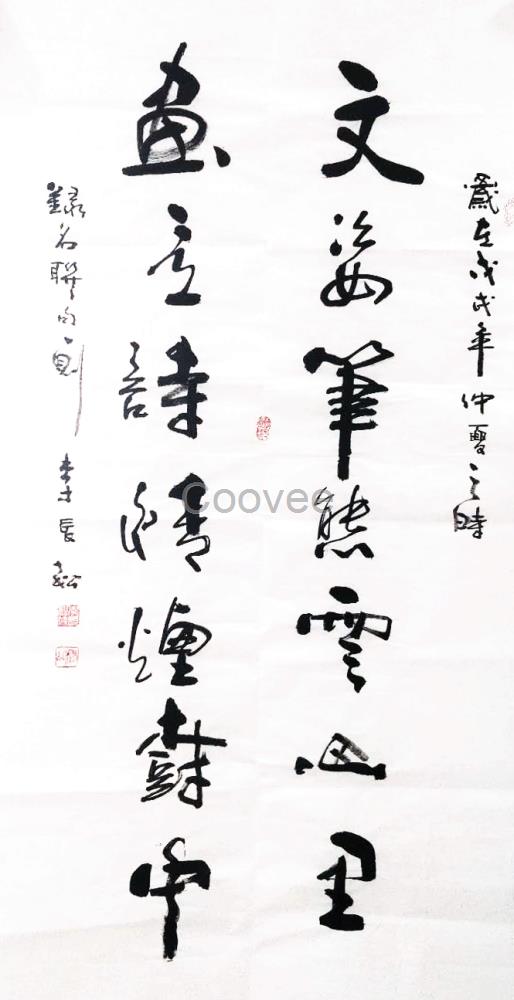 歲在戊戌年仲夏之時
文姿筆態雲山里
畫意詩情煙樹中
錄名聯句一則 李長松
Coovee